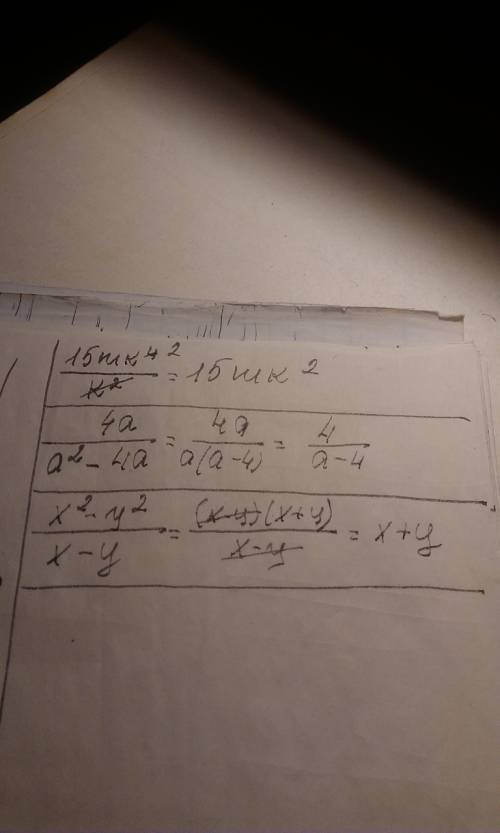 15mk⁴ ² / k² = 15mk²
4a / a² - 4a = 4a / a(a-4) = 4 / a-4
x² - y² / x - y = (x-y)(x+y) / x-y = x+y